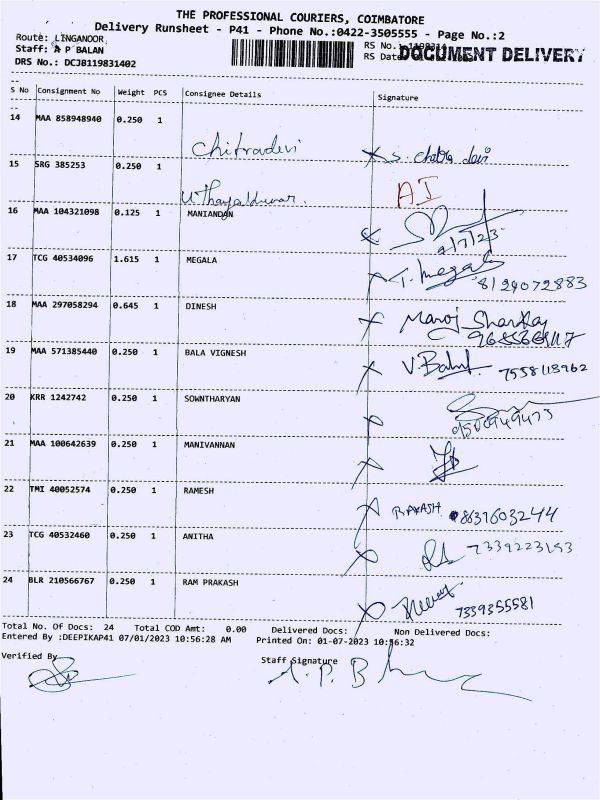 THE PROFESSIONAL COURIERS, COIMBATORE
Delivery Runsheet - P41 - Phone No.:0422-3505555 - Page No.:2
Route: LINGANOOR
Staff: A P BALAN
DRS No.: DCJ8119831402
RS No.:
RS Date
DOCUMENT DELIVERY
S No Consignment No Weight PCS Consignee Details Signature
14 MAA 858948940 0.250 1 Chitradevi S. Chitra devi
15 SRG 385253 0.250 1 AI
16 MAA 104321098 0.125 1 MANIANDAN 2/7/23
17 TCG 40534096 1.615 1 MEGALA T. Megala 8124072883
18 MAA 297058294 0.645 1 DINESH Manoj
19 MAA 571385440 0.250 1 BALA VIGNESH V. Bala 7558118962
20 KRR 1242742 0.250 1 SOWNTHARYAN
21 MAA 100642639 0.250 1 MANIVANNAN
22 TMI 40052574 0.250 1 RAMESH PRAKASH 8631603244
23 TCG 40532460 0.250 1 ANITHA 7339223193
24 BLR 210566767 0.250 1 RAM PRAKASH 7339355581
Total No. Of Docs: 24 Total COD Amt: 0.00 Delivered Docs: Non Delivered Docs:
Entered By :DEEPIKAP41 07/01/2023 10:56:28 AM Printed On: 01-07-2023 10:56:32
Verified By
Staff Signature
A.P.B